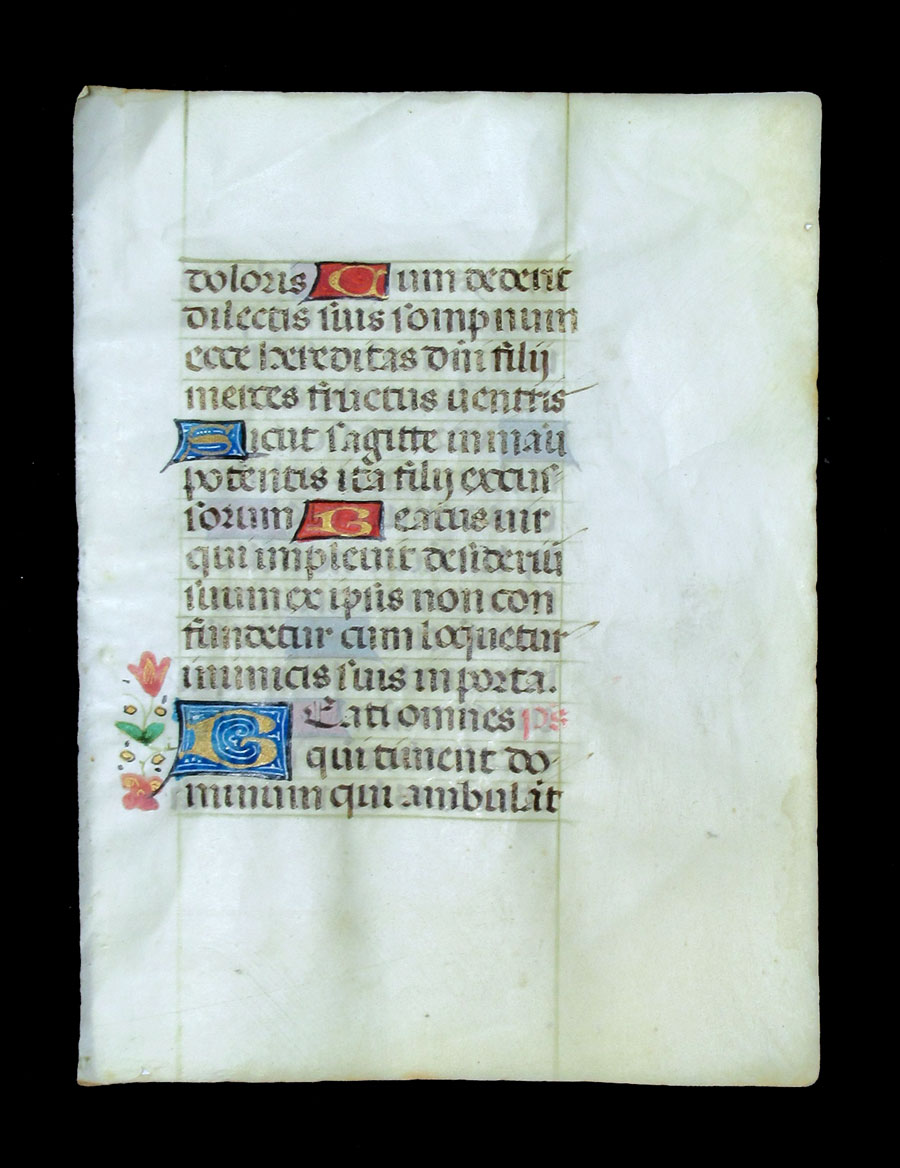 doloris Cum dederit
dilectis suis sompnum
ecce hereditas dm̄ filij
merces fructus ventris
Sicut sagitte in manū
potentis ita filij excus
sorum Beatus vir
qui implevit desideriū
suum ex ipsis non con
fundetur cum loquetur
inimicis suis in porta.
Beati omnes ps
qui timent do
minum qui ambulāt